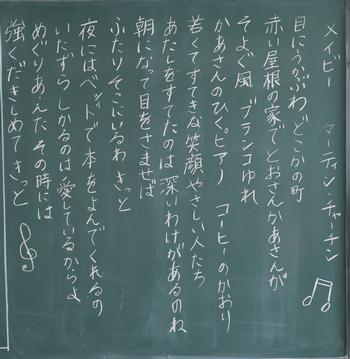 メイビー　マーティン・チャーナン
目にうかぶわ どこかの町
赤い屋根の家でとおさんかあさんが
そよぐ風 ブランコゆれ
かあさんのひくピアノ コーヒーのかおり
若くてすてきな笑顔やさしい人たち
あたしをすてたのは深いわけがあるのね
朝になって目をさませば
ふたりそこにいるわ きっと
夜にはベットで本をよんでくれるの
いたずら しかるのは愛しているからよ
めぐりあえた その時には
強くだきしめて きっと